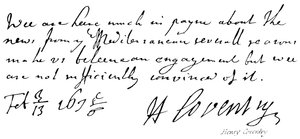 Wee are here much in payne about the
news from ye Mediterranean severall reasons
make us beleeve an engagement but wee
are not sufficiently convinced of it.
Feb 3/13 167 5/6
H Coventry
Henry Coventry